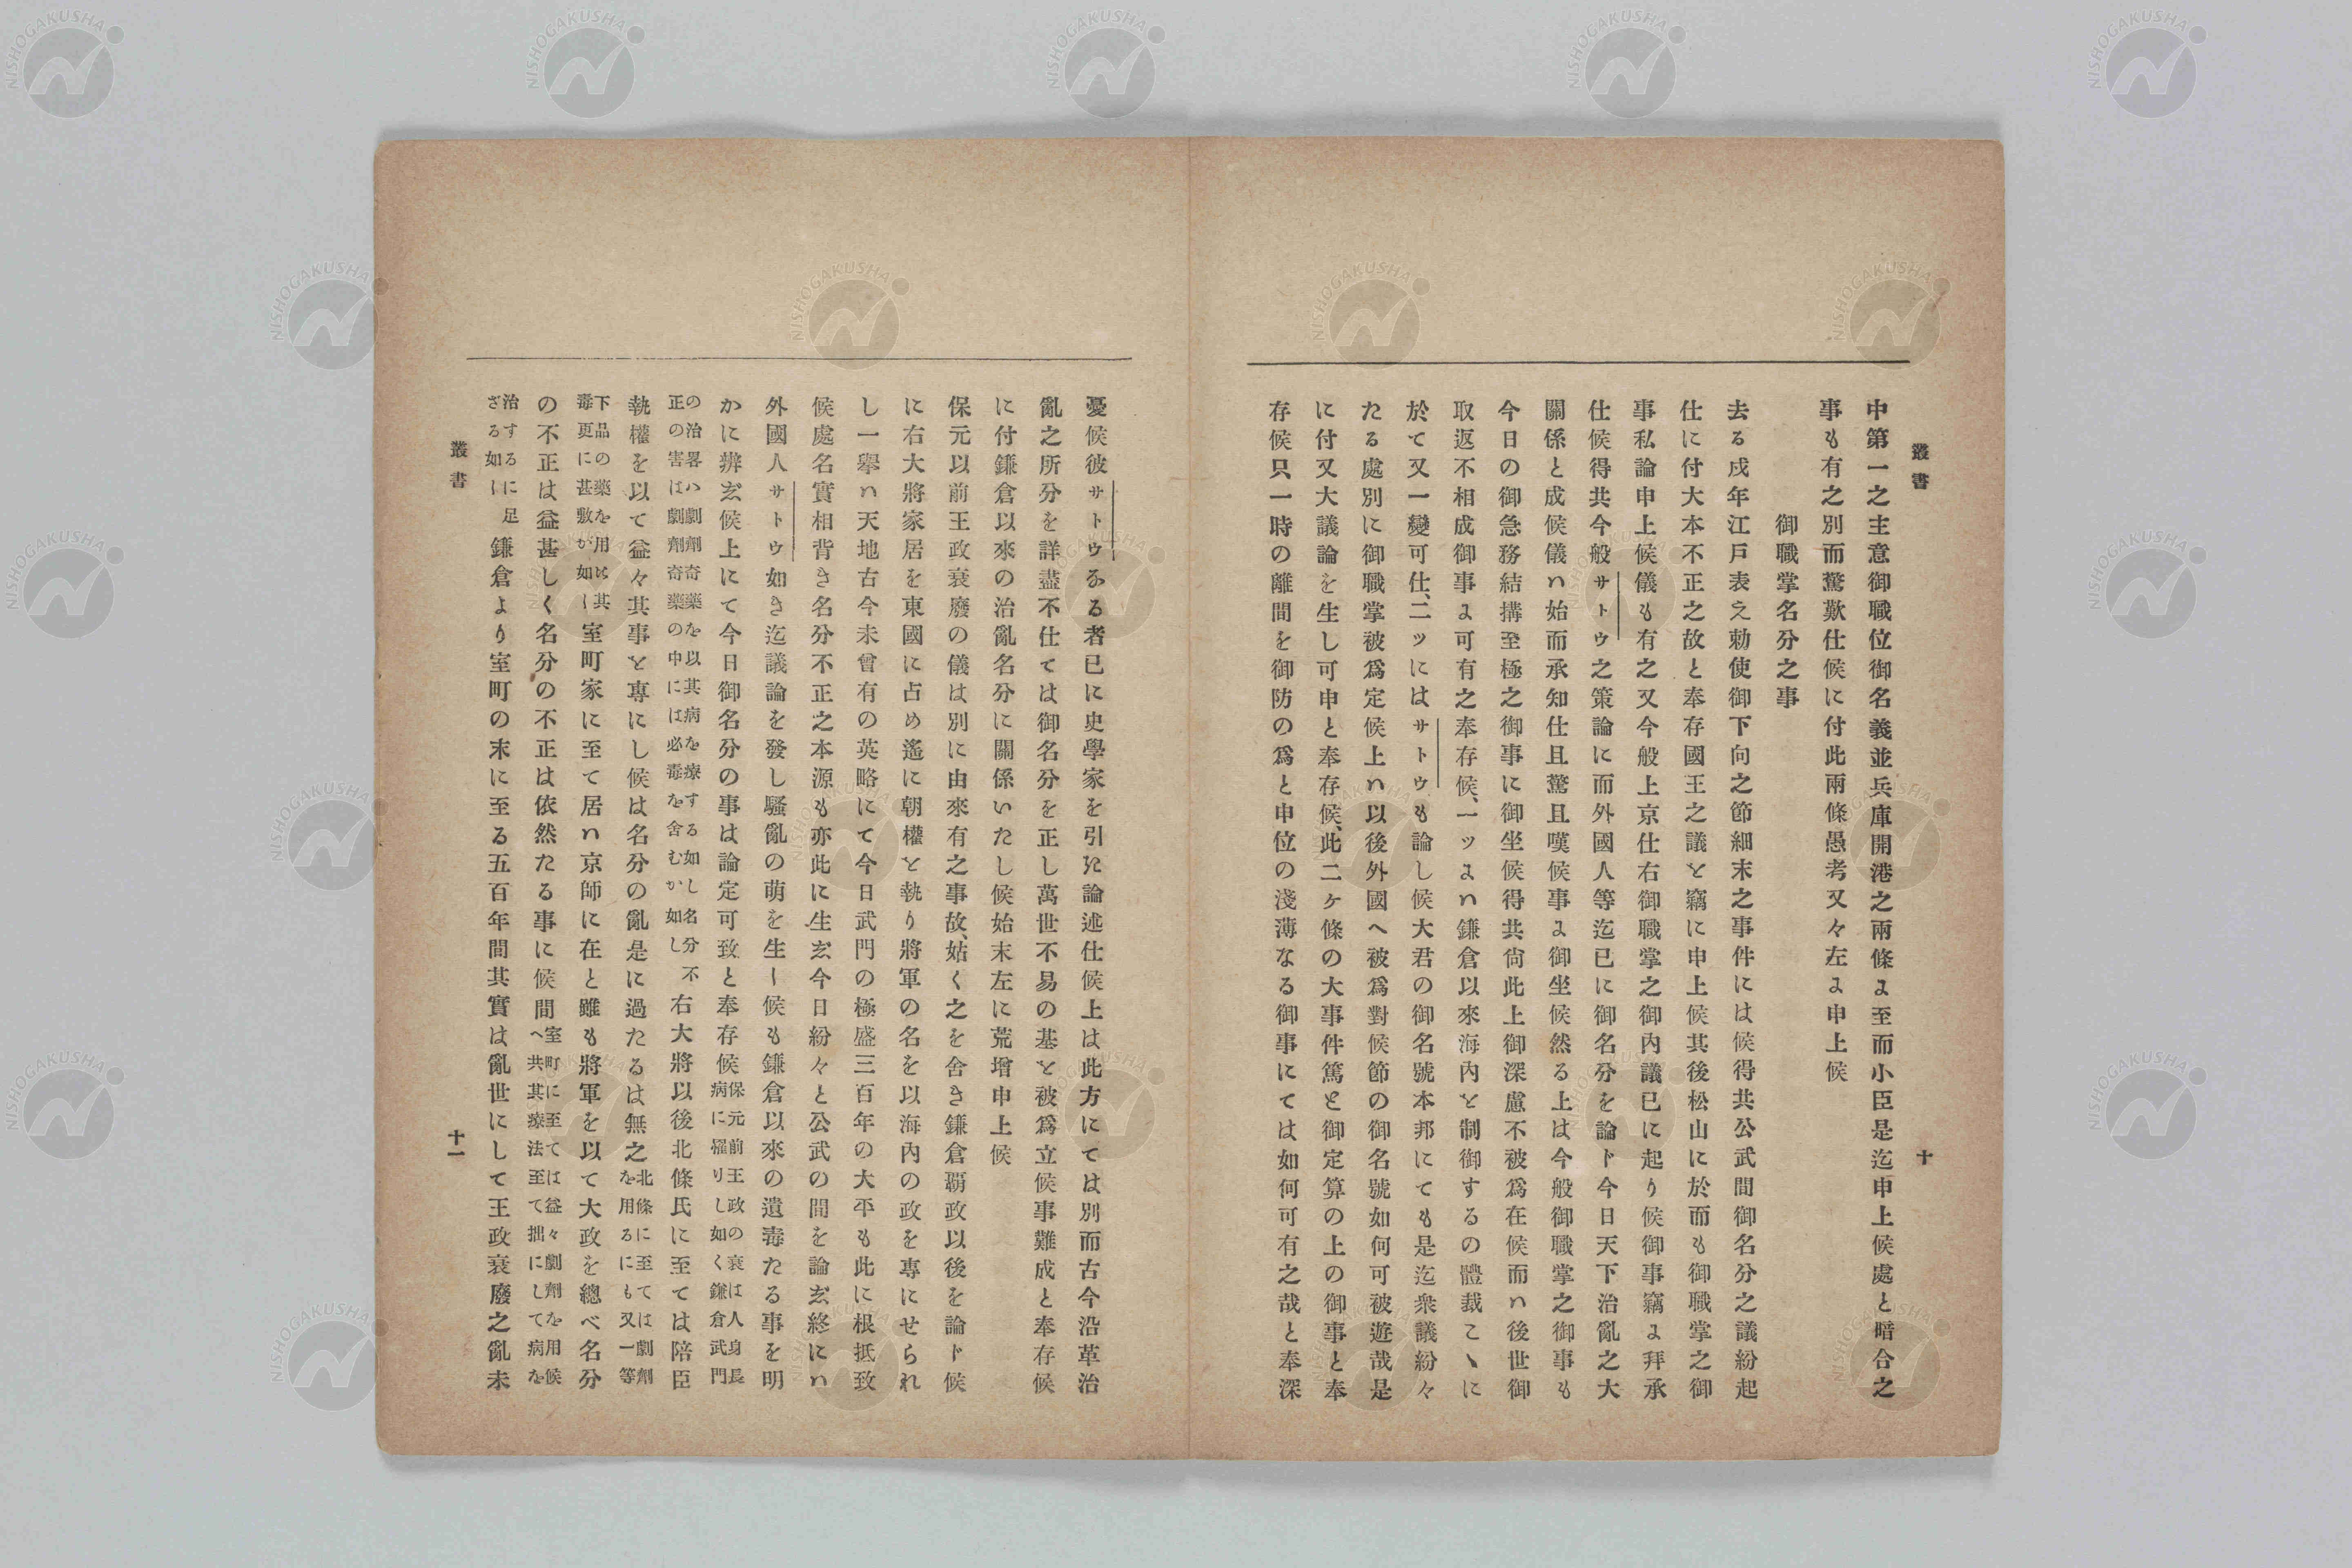 叢書
十
中第一之主意御職位御名義並兵庫開港之兩條ﾖ至而小臣是迄申上候處と暗合之
事も有之別而驚歎仕候に付此兩條愚考又々左ﾖ申上候
御職掌名分之事
去る戌年江戸表え勅使御下向之節細末之事件には候得共公武間御名分之議紛起
仕に付大本不正之故と奉存國王之議を竊に申上候其後松山に於而も御職掌之御
事私論申上候儀も有之又今般上京仕右御職掌之御内議已に起り候御事竊ﾖ拜承
仕候得共今般サトウ之策論に而外國人等迄已に御名分を論ト今日天下治亂之大
關係と成候儀ハ始而承知仕且驚且嘆候事ﾖ御坐候然る上は今般御職掌之御事も
今日の御急務結搆至極之御事に御坐候得共尙此上御深慮不被爲在候而ハ後世御
取返不相成御事ﾖ可有之奉存候、一ッﾖハ鎌倉以來海内を制御するの體裁こゝに
於て又一變可仕、二ッにはサトウも論し候大君の御名號本邦にても是迄衆議紛々
たる處別に御職掌被爲定候上ハ以後外國へ被爲對候節の御名號如何可被遊哉是
に付又大議論を生し可申と奉存候、此二ヶ條の大事件篤と御定算の上の御事と奉
存候只一時の離間を御防の爲と申位の淺薄なる御事にては如何可有之哉と奉深
憂候彼サトウなる者已に史學家を引た論述仕候上は此方にては別而古今沿革治
亂之所分を詳盡不仕ては御名分を正し萬世不易の基を被爲立候事難成と奉存候
に付鎌倉以來の治亂名分に關係いたし候始末左に荒增申上候
保元以前王政衰廢の儀は別に由來有之事故、姑く之を舍き鎌倉覇政以後を論ト候
に右大將家居を東國に占め遙に朝權を執り將軍の名を以海内の政を專にせられ
し一擧ハ天地古今未曾有の英略にて今日武門の極盛三百年の大平も此に根抵致
候處名實相背き名分不正之本源も亦此に生玄今日紛々と公武の間を論玄終にハ
外國人サトウ如き迄議論を發し騷亂の萌を生し候も鎌倉以來の遺毒たる事を明
かに辨玄候上にて今日御名分の事は論定可致と奉存候保元前王政の衰は人身長病に罹りし如く鎌倉武門
の治畧ハ劇劑奇藥を以其病を療するる如し名分不正の害は劇劑奇藥の中には必毒を舍むか如し右大將以後北條氏に至ては陪臣
執權を以て益々其事を專にし候は名分の亂是に過たるは無之北條に至ては劇劑を用るにも又一等
下品の藥を用ば其毒更に甚敷が如し室町家に至て居ハ京師に在と雖も將軍を以て大政を總べ名分
の不正は益甚しく名分の不正は依然たる事に候間室町に至ては益々劇劑を用候へ共其療法至て拙にして病を
治するに足ざる如し鎌倉より室町の末に至る五百年間其實は亂世にして王政衰廢之亂未
叢書
十一